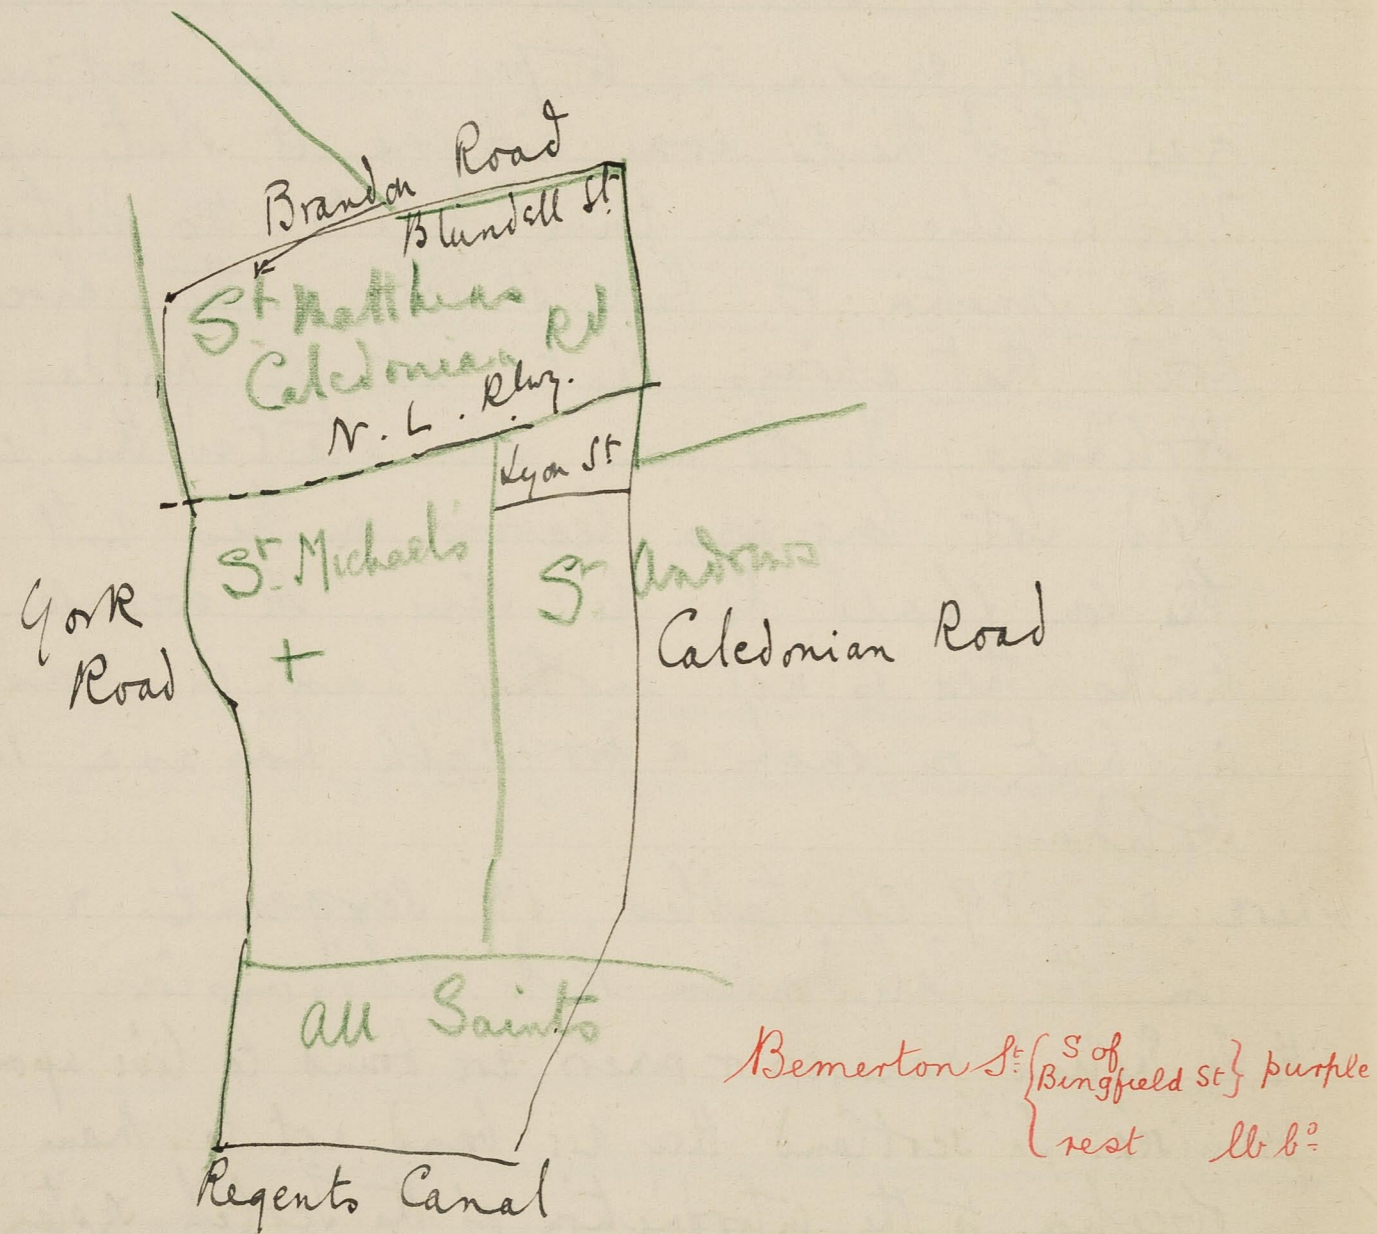 Brandon Road
Blundell St.
St. Matthias
Caledonian Rd.
N. L. Rlwy.
Lyon St
St. Michael's
+
St Andrews
York
Road
Caledonian Road
All Saints
Bemerton St: { S of
Bingfield St } purple
rest lb bo
Regents Canal